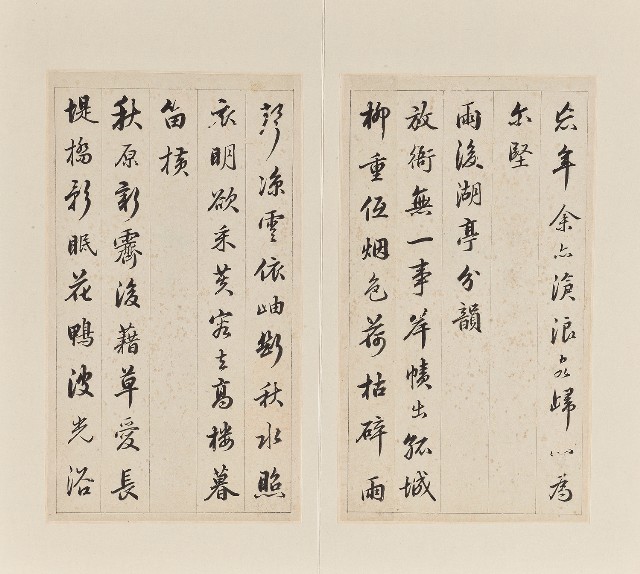 忘年余亦滄浪客歸心為
尔堅
雨後湖亭分韻
放衙無一事岸幘出孤城
柳重低烟色荷枯碎雨
聲涼雲依岫斷秋水照
衣明欲采芙蓉去高樓暮
笛橫
秋原新霽後藉草愛長
堤橋影眠花鴨波光浴